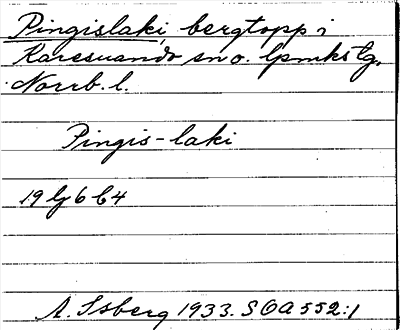 Pingislaki, bergtopp i
Karesuando sn o. lpmkstg,
Norrb. l.
Pingis-laki
19 lj 6 b 4
A. Isberg 1933. SOA 552:1